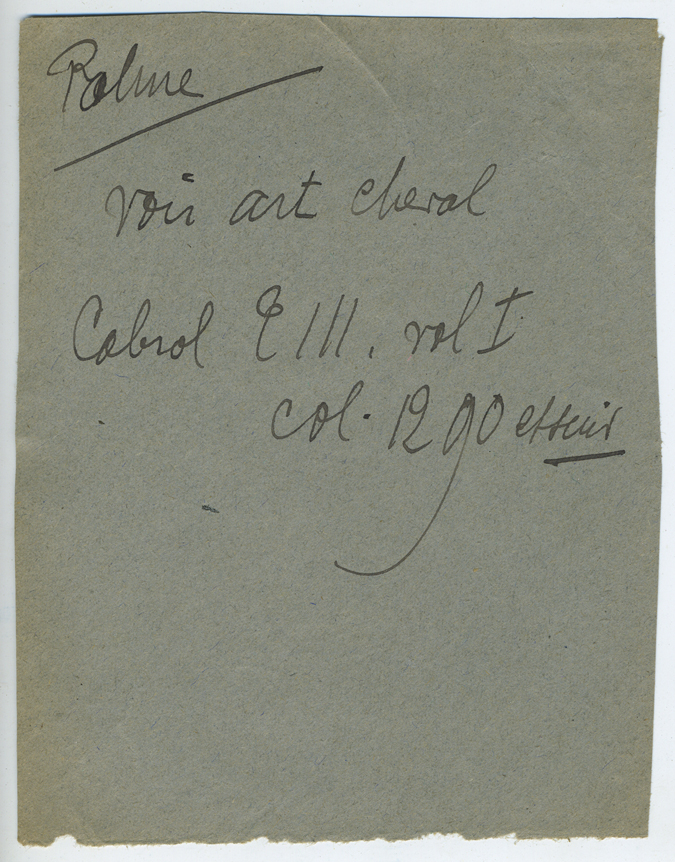 Palme
voir art cheval
Cabrol T III. vol I
col. 1290 et suiv